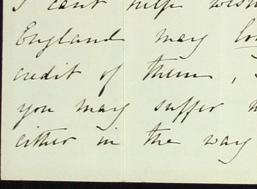 I can't help wish
England may
credit of them,
you may suffer
either in the way